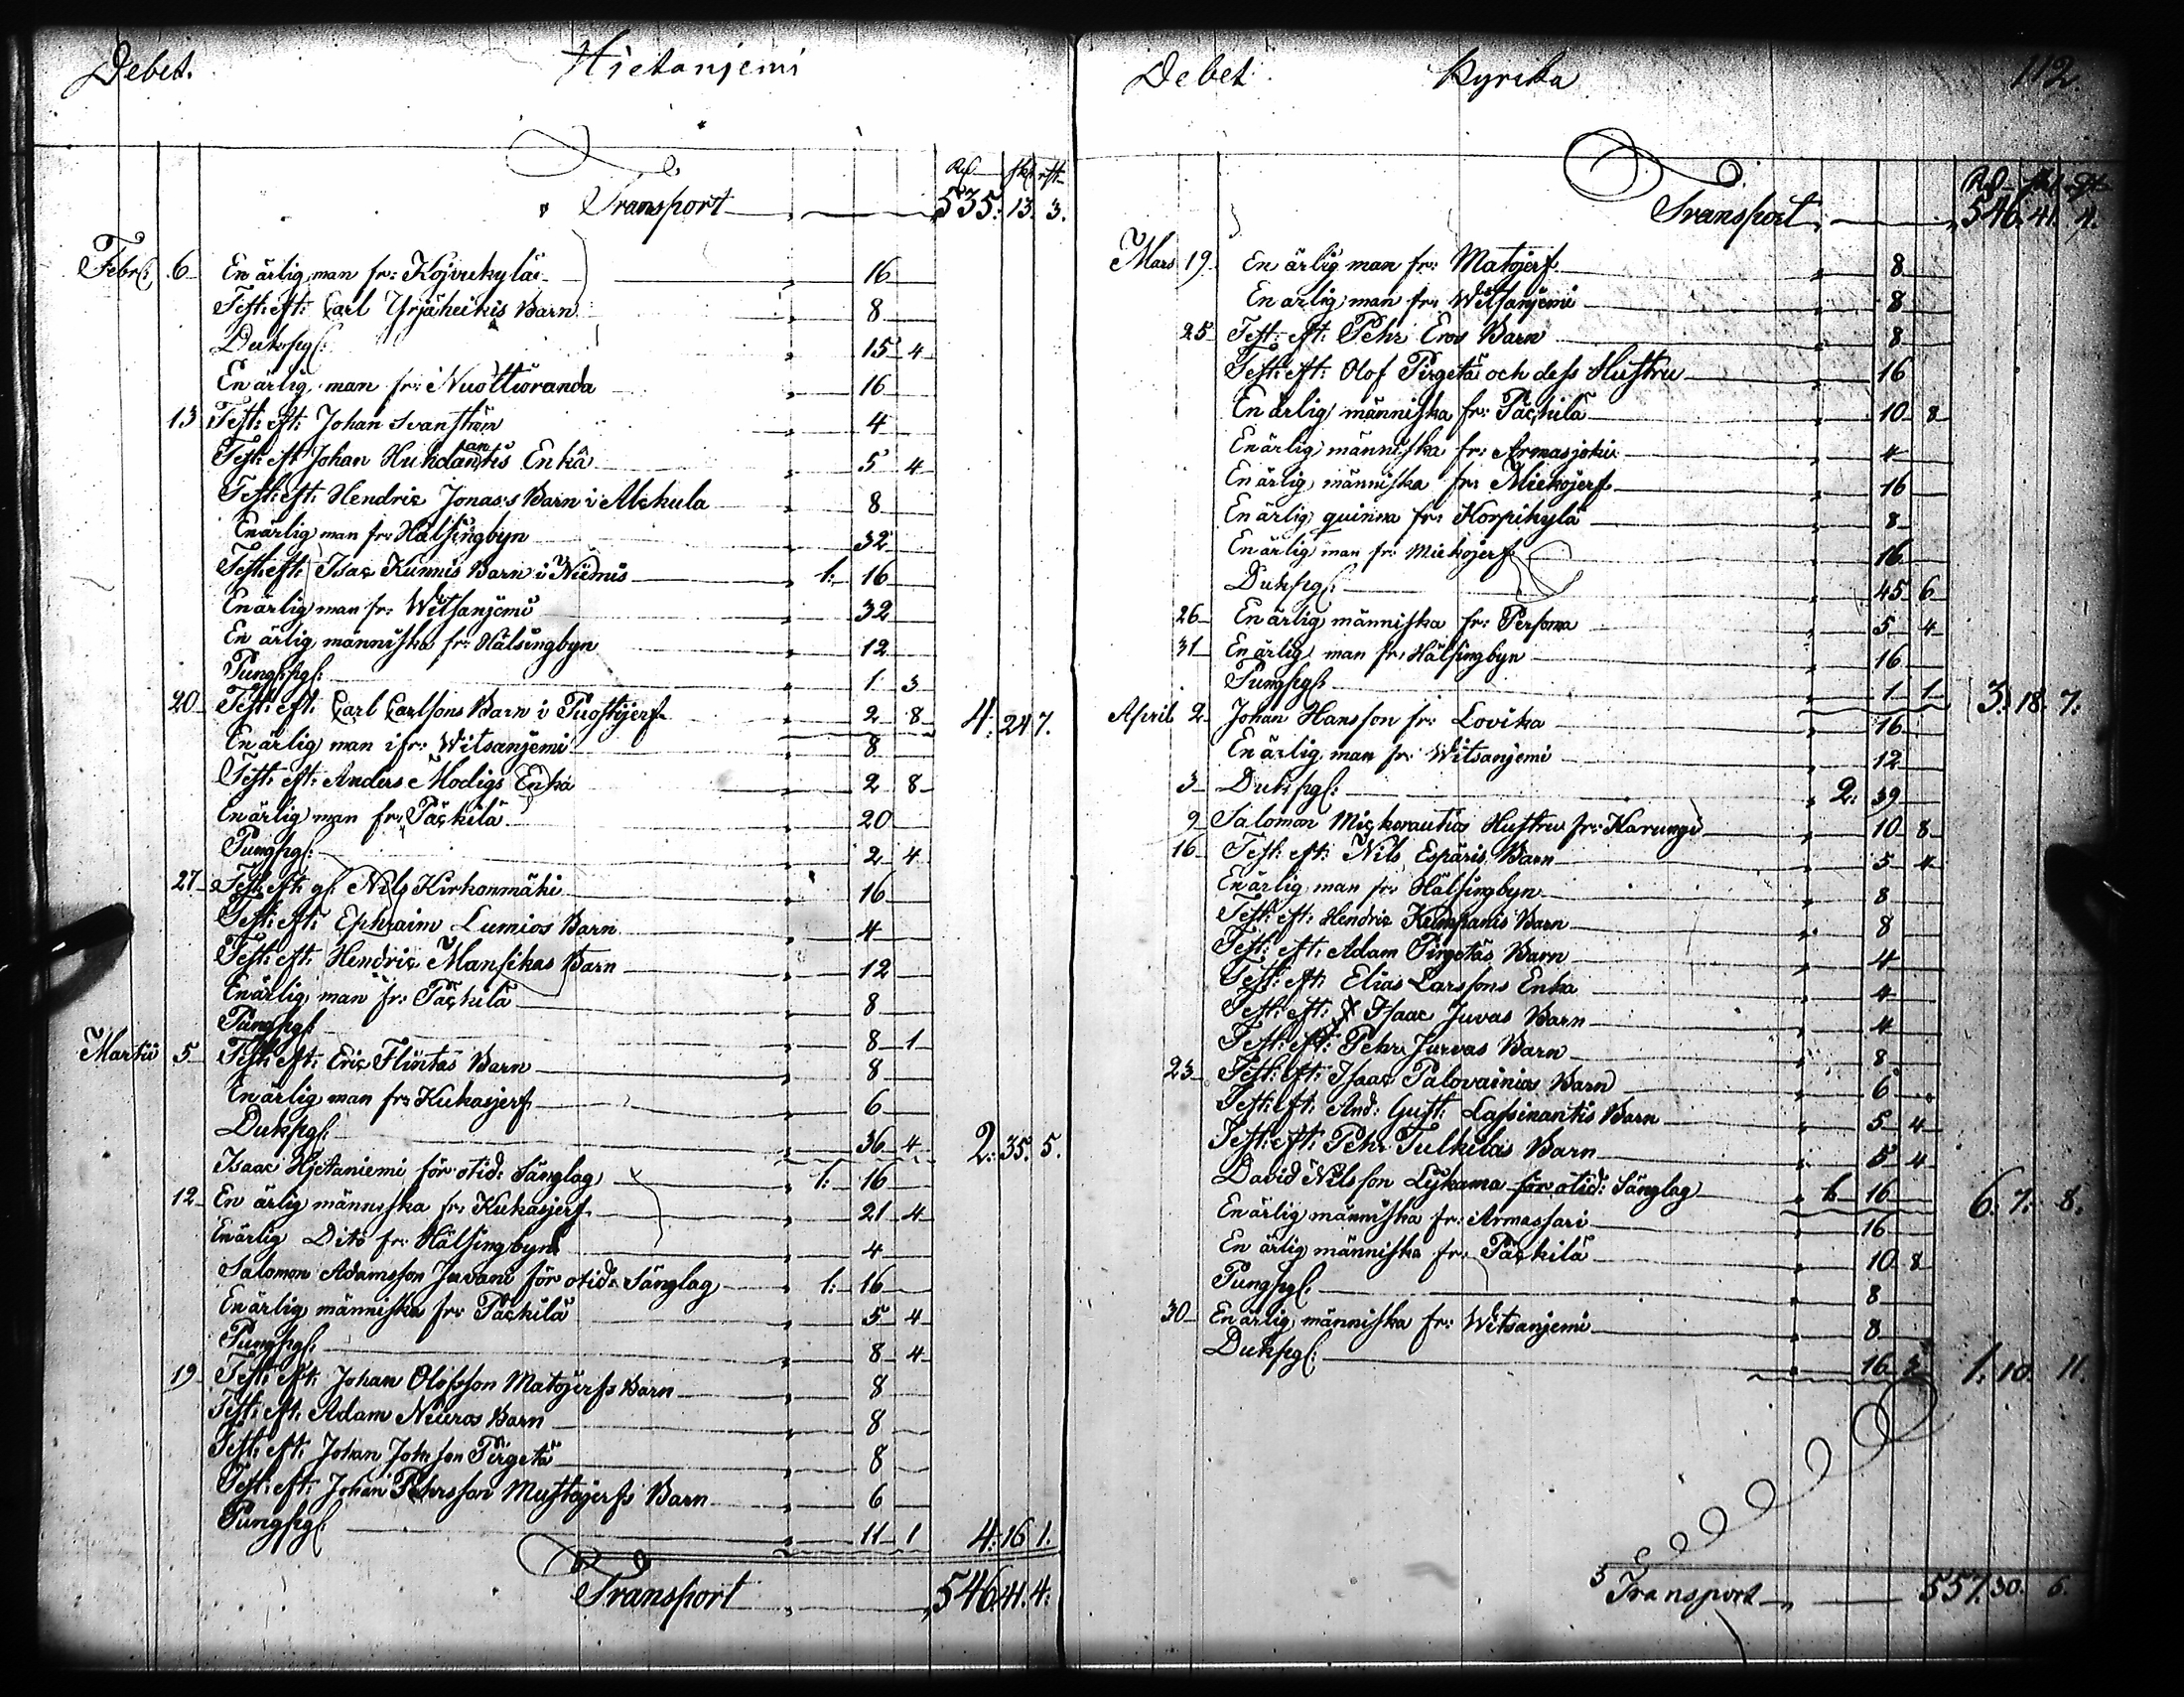 Debet. Hietanjemi
Rd sk rst
Transport 535: 13. 3.
Febr: 6 En ärlig man fr: Kojvukylä 16
Test: eft: Carl Yrjäheikis Barn 8
Dukpgr: 15 4
En ärlig man fr: Nuottioranda 16
13 Test: eft: Johan Svanström 4
Test: eft Johan Huhdanantis Enka 5 4
Test: eft: Hendric Jonas:s Barn i Alckula 8
En ärlig man fr: Hälsingbyn 32
Test: eft: Isac Kunnis Barn i Niemis 1: 16
En ärlig man fr: Witsanjemi 32
En ärlig människa fr: Hälsingbyn 12
Pungpgr: 1 3
20 Test: eft: Carl Carlsons Barn i Puostijerf 2 8 4: 24 7.
En ärlig man ifr: Witsanjemi 8
Test: eft: Anders Modigs Enka 2 8
En ärlig man fr: Päckilä 20
Pungpgr: 2 4
27 Test: eft: gl: Nils Kirkonmäki 16
Test: eft: Ephraim Lumios Barn 4
Test: eft: Hendric Mansikas Barn 12
En ärlig man fr: Päckilä 8
Pungpgr: 8 1
Martii 5 Test: eft: Eric Flintas Barn 8
En ärlig man fr: Kukasjerf 6
Dukpgr: 36 4 2: 35. 5.
Isaac Hjetaniemi för otid: Sänglag 1: 16
12 En ärlig människa fr: Kukasjerf 21 4
En ärlig Dito fr: Hälsingbyn 4
Salomon Adamsson Juvani för otid: Sänglag 1: 16
En ärlig människa fr: Päckilä 5 4
Pungpgr: 8 4
19 Test: eft: Johan Olofsson Matojerfs Barn 8
Test: eft: Adam Niuros Barn 8
Test: eft: Johan Johsson Pirgetä 8
Test: eft: Johan Pehrsson Mustajerfs Barn 6
Pungpgr: 11 1 4: 16 1.
Transport 546. 41. 4.
Debet Kyrcka 112.
Rd sk rst
Transport 546. 41. 4.
Mars 19 En ärlig man fr: Matojerf 8
En ärlig man fr: Witsanjemi 8
25 Test: eft: Pehr Eros Barn 8
Test: eft: Olof Pirgetä och dess Hustru 16
En ärlig människa fr: Päckilä 10 8
En ärlig människa fr: Armasjoki 4
En ärlig människa fr: Miekojerf 16
En ärlig quinna fr: Korpikylä 8
En ärlig man fr: Miekojerf 16
Dukpgr: 45 6
26 En ärlig människa fr: Persoma 5 4
31 En ärlig man fr: Hälsingbyn 16
Pungpgr: 1 1 3: 18. 7.
April 2 Johan Hansson fr: Lovika 16
En ärlig man fr: Witsanjemi 12
3 Dukpgr: 2: 39
9 Salomon Mickorautios Hustru fr: Karungi 10 8
16 Test: eft: Nils Espäris Barn 5 4
En ärlig man fr: Hälsingbyn 8
Test: eft: Hendric Kumpanis Barn 8
Test: eft: Adam Pirgetäs Barn 4
Test: eft: Elias Larssons Enka 4
Test: eft: Isaac Juvas Barn 4
Test: eft: Pehr Jurvas Barn 8
23 Test: eft: Isaac Palovainios Barn 6
Test: eft: And: Gust: Lassinantis Barn 5 4
Test: eft: Pehr Tulkilas Barn 5 4
David Nilsson Lijkama för otid: Sänglag 1 16 6. 7. 8.
En ärlig människa fr: Armassari 16
En ärlig människa fr: Päckilä 10 8
Pungpgr: 8
30 En ärlig människa fr: Witsanjemi 8
Dukpgr: 16 3 1. 10. 11.
Transport 557. 30. 6.